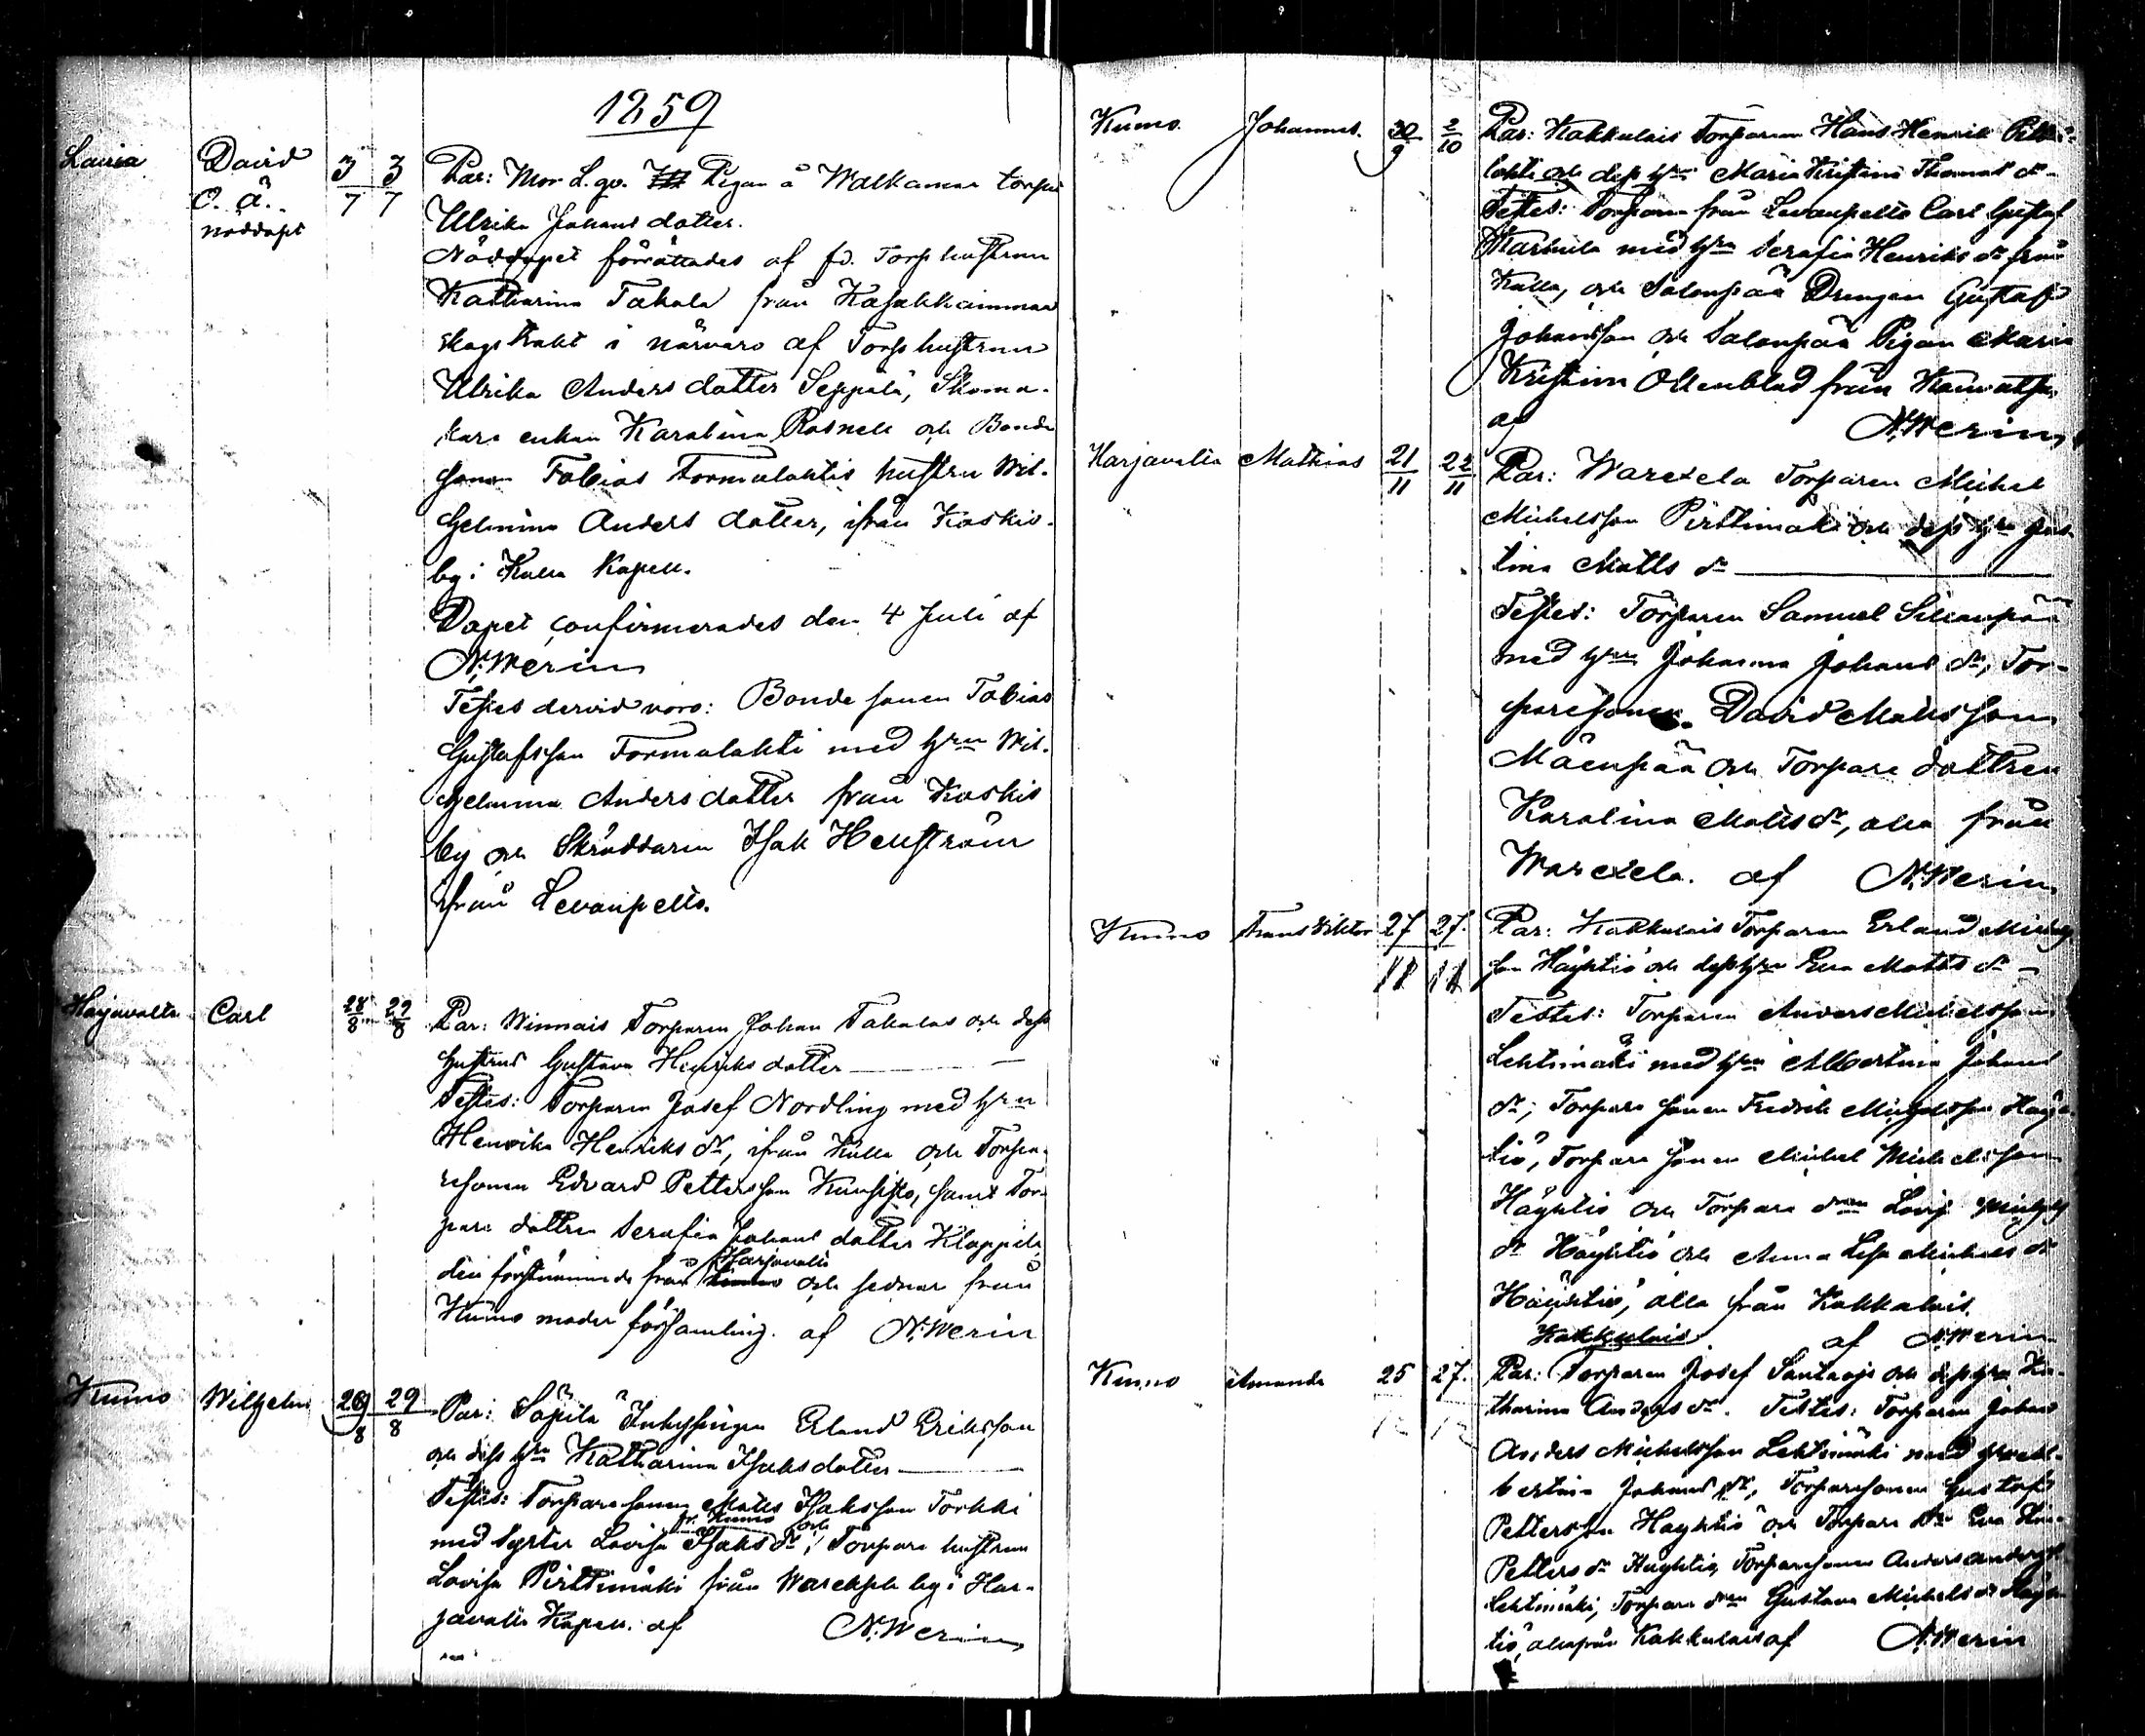 1859
Lavia David 3/7 3/7 Par: Mor L. qv. Pigan å Walkamaa torpet
O. Ä. Ulrika Johans dotter.
nöddöpt Nöddopet förrättades af fd. Torp hustrun
Katharina Takala från Kasakkaimmaa
skogstrakt i närvaro af Torp hustrun
Ulrika Anders dotter Seppälä, Skoma-
kare enkan Karolina Rosnell och Bonde
sonen Tobias Formulahtis hustru Wil-
helmina Anders dotter, ifrån Koskis
by i Kulla Kapell.
Dopet confirmerades den 4 Juli af
N. Merin
Testes dervid voro: Bonde sonen Tobias
Gustafsson Formulahti med hrn Wil-
helmina Anders dotter från Koskis
by och Skräddaren Isak Hellström
ifrån Levanpelto.
Harjavalta Carl 28/8 29/8 Par: Winnais Torparen Johan Takalas och dess
hustrus Gustava Henriks dotter
Testes: Torparen Josef Nordling med hrn
Henrika Henriks dr, ifrån Kulla och Torpa-
resonen Edvard Pettersson Kuusisto, samt Tor-
pare dottren Serafia Johans dotter Klappila
den förstnämnde från Harjavalta och sednar från
Kumo moder församling. af N. Merin
Kumo Wilhelm 26/8 29/8 Par: Säpilä Inhysingen Erland Eriksson
och dess hru Katharina Isaks dotter
Testes: Torpare sonen Matts Isaksson Torkki
fr. Kumo och
med Syster Lovisa Isaks dr, Torpare hustrun
Lovisa Pirttimäki från Warekselä by i Har-
javalta Kapell. af N. Merin
Kumo Johannes 30/9 2/10 Par: Kakkulais Torparen Hans Henrik
lahti och dess hru Maria Kristina Thomas dr
Testes: Torparen från Levanpelto Carl Gustaf
Markula med hru Serafia Henriks dr från
Kulla, och Salonpää Drengen Gustaf
Johansson och Salonpää Pigan Maria
Kristina Ollenblad från Kauvatsa
af N. Merin
Harjavalta Mathias 21/11 22/11 Par: Warexela Torparen Michel
Michelsson Pirttimäki och dess hru Jus-
tina Matts dr
Testes: Torparen Samuel Sillanpää
med hru Johanna Johans dr, Tor-
paresonen David Mattsson
Mäenpää och Torpare dottren
Karolina Matts dr, alla från
Warexela. af N. Merin
Kumo Frans Viktor 27/11 27/11 Par: Kakkulais Torparen Erland Michels
son Häyhtiö och dess hru Eva Matts dr
Testes: Torparen Anders Michelsson
Lehtimäki med hru Albertina Johans
dr; Torpare sonen Fredrik Michelsson Häyh-
tiö, Torpare sonen Michel Michelsson
Häyhtiö och Torpare dren Lovis Michels
dr Häyhtiö och Anna Lisa Michels dr
Häyhtiö, alla från Kakkulais.
Kakkulais af N. Merin
Kumo Amanda 25 27 Par: Torparen Josef Santaoja och dess hru Ka-
tharina Anders dr. Testes: Torparen Johan
Anders Michelsson Lehtimäki med hru Al-
bertina Johans dr, Torparesonen Gustaf
Pettersson Häyhtiö och Torpare dr Eva
Petters dr Häyhtiö, Torparesonen Anders Andersson
Lehtimäki, Torpare dren Gustava Michels dr Häyh-
tiö, alla från Kakkulais af N. Merin